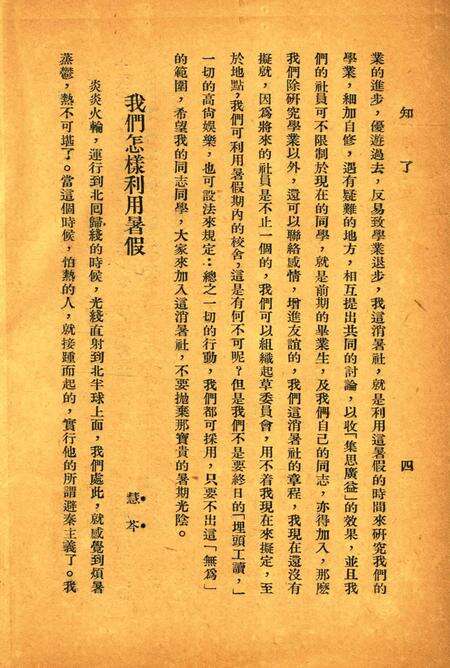 知了
四
業的進步，優遊過去，反易致學業退步，我這消暑社，就是利用這暑假的時間來研究我們的
學業，細加自修，遇有疑難的地方，相互提出共同的討論，以收「集思廣益」的效果，並且我
們的社員可不限制於現在的同學，就是前期的畢業生，及我們自己的同志，亦得加入，那麽
我們除研究學業以外，還可以聯絡感情，增進友誼的，我們這消暑社的章程，我現在還沒有
擬就，因爲將來的社員是不止一個的，我們可以組織起草委員會，用不着我現在來擬定，至
於地點，我們可利用暑假期內的校舍，這是有何不可呢？但是我們不是要終日的「埋頭工讀，」
一切的高尙娛樂，也可設法來規定：總之一切的行動，我們都可採用，只要不出這「無爲」
的範圍，希望我的同志同學，大家來加入這消暑社，不要拋棄那寶貴的暑期光陰。
我們怎樣利用暑假
慧芩
炎炎火輪，運行到北囘歸綫的時候，光綫直射到北半球上面，我們處此，就感覺到煩暑
蒸鬱，熱不可堪了。當這個時候，怕熱的人，就接踵而起的，實行他的所謂避秦主義了。我